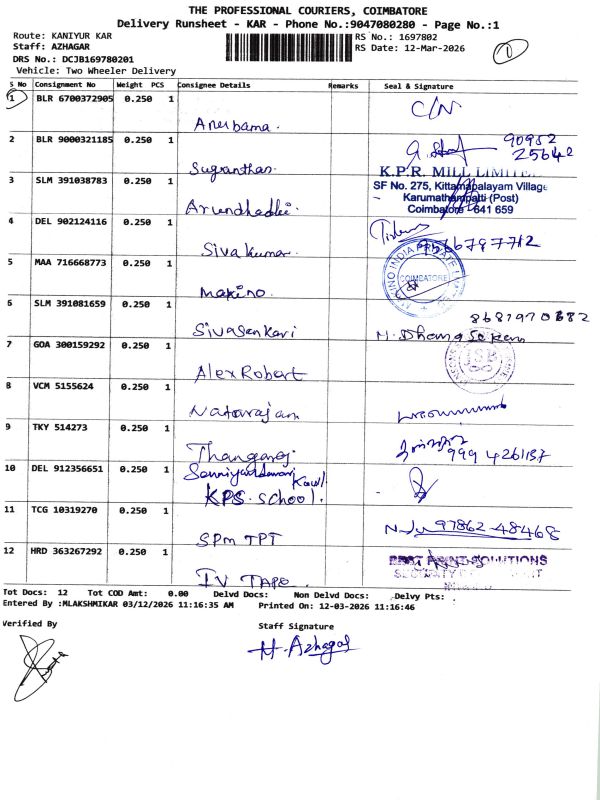 THE PROFESSIONAL COURIERS, COIMBATORE
Delivery Runsheet - KAR - Phone No.:9047080280 - Page No.:1
Route: KANIYUR KAR
RS No.: 1697802
Staff: AZHAGAR
RS Date: 12-Mar-2026
1
DRS No.: DCJB169780201
Vehicle: Two Wheeler Delivery
S No Consignment No Weight PCS Consignee Details Remarks Seal & Signature
1 BLR 6700372905 0.250 1 Anubama. C/N
2 BLR 9000321185 0.250 1 Sugranthan. 90952 25642
3 SLM 391038783 0.250 1 Arundhadhi. K.P.R. MILL LIMITED
SF No. 275, Kittampalayam Village
Karumathampatti (Post)
Coimbatore - 641 659
4 DEL 902124116 0.250 1 Sivakumar. 9566797712
5 MAA 716668773 0.250 1 Makino. INDIA PRIVATE COIMBATORE
6 SLM 391081659 0.250 1 Sivasankari 8681970682
7 GOA 300159292 0.250 1 Alex Robert JSB
8 VCM 5155624 0.250 1 Natarajan
9 TKY 514273 0.250 1 Thangaraj
10 DEL 912356651 0.250 1 KPS School.
11 TCG 10319270 0.250 1 SPM TPT 97862-48468
12 HRD 363267292 0.250 1 IV TAPE. PRINT SOLUTIONS
Tot Docs: 12 Tot COD Amt: 0.00 Delvd Docs: Non Delvd Docs: Delvy Pts:
Entered By :MLAKSHMIKAR 03/12/2026 11:16:35 AM Printed On: 12-03-2026 11:16:46
Verified By
Staff Signature
H. Azhagar